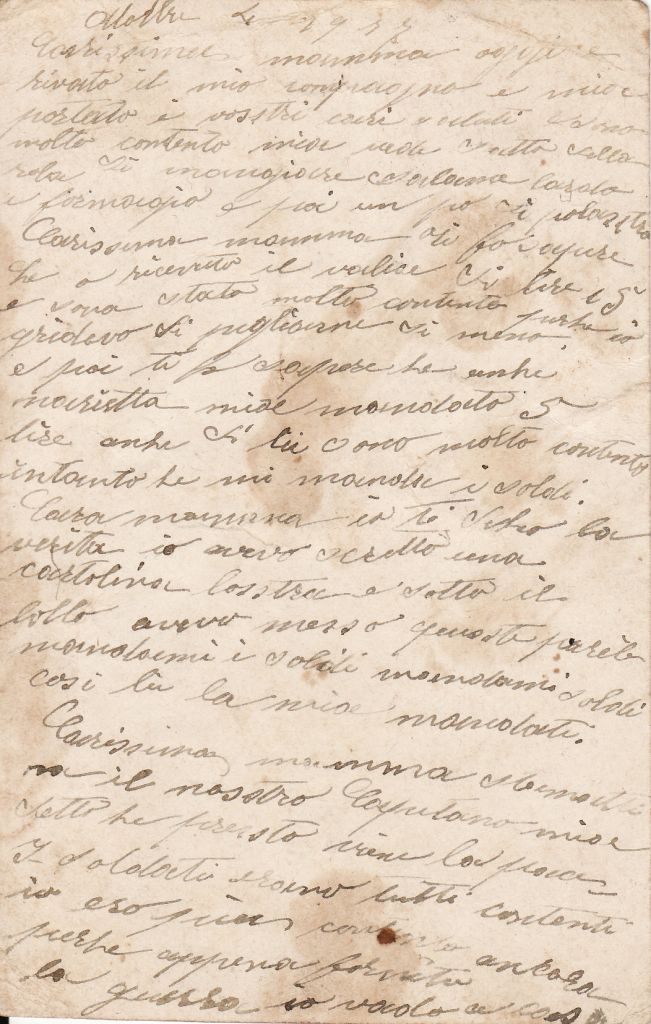 Carissima mamma oggi e
rivato il mio compagno e miae
portato i vostri cari saluti e sono
molto contento miae
roba di mangiare salame lardo
e formagio e poi un po di polastro
Carissima mamma ti fo sapere
he o ricevuto il valice di lire 15
e sono stato molto contento perhe io
gridevo di pigliarne di meno
e poi ti fo sapere he anhe
marietta miae mandato 5
lire anhe di lu sono molto contento
intanto he mi manda i soldi.
Cara mamma io ti diho la
verita io avevo scritto una
cartolina lostra e sotto il
bollo avevo messo queste parole
mandami i soldi mandami soldi
cosi lu la miae mandati.
Carissima mamma
na il nostro Capitano miae
detto he presto viene la pace
I soldati erano tutti contenti
io ero piu contento ancora
perhe appena fornita
la guerra io vado a casa